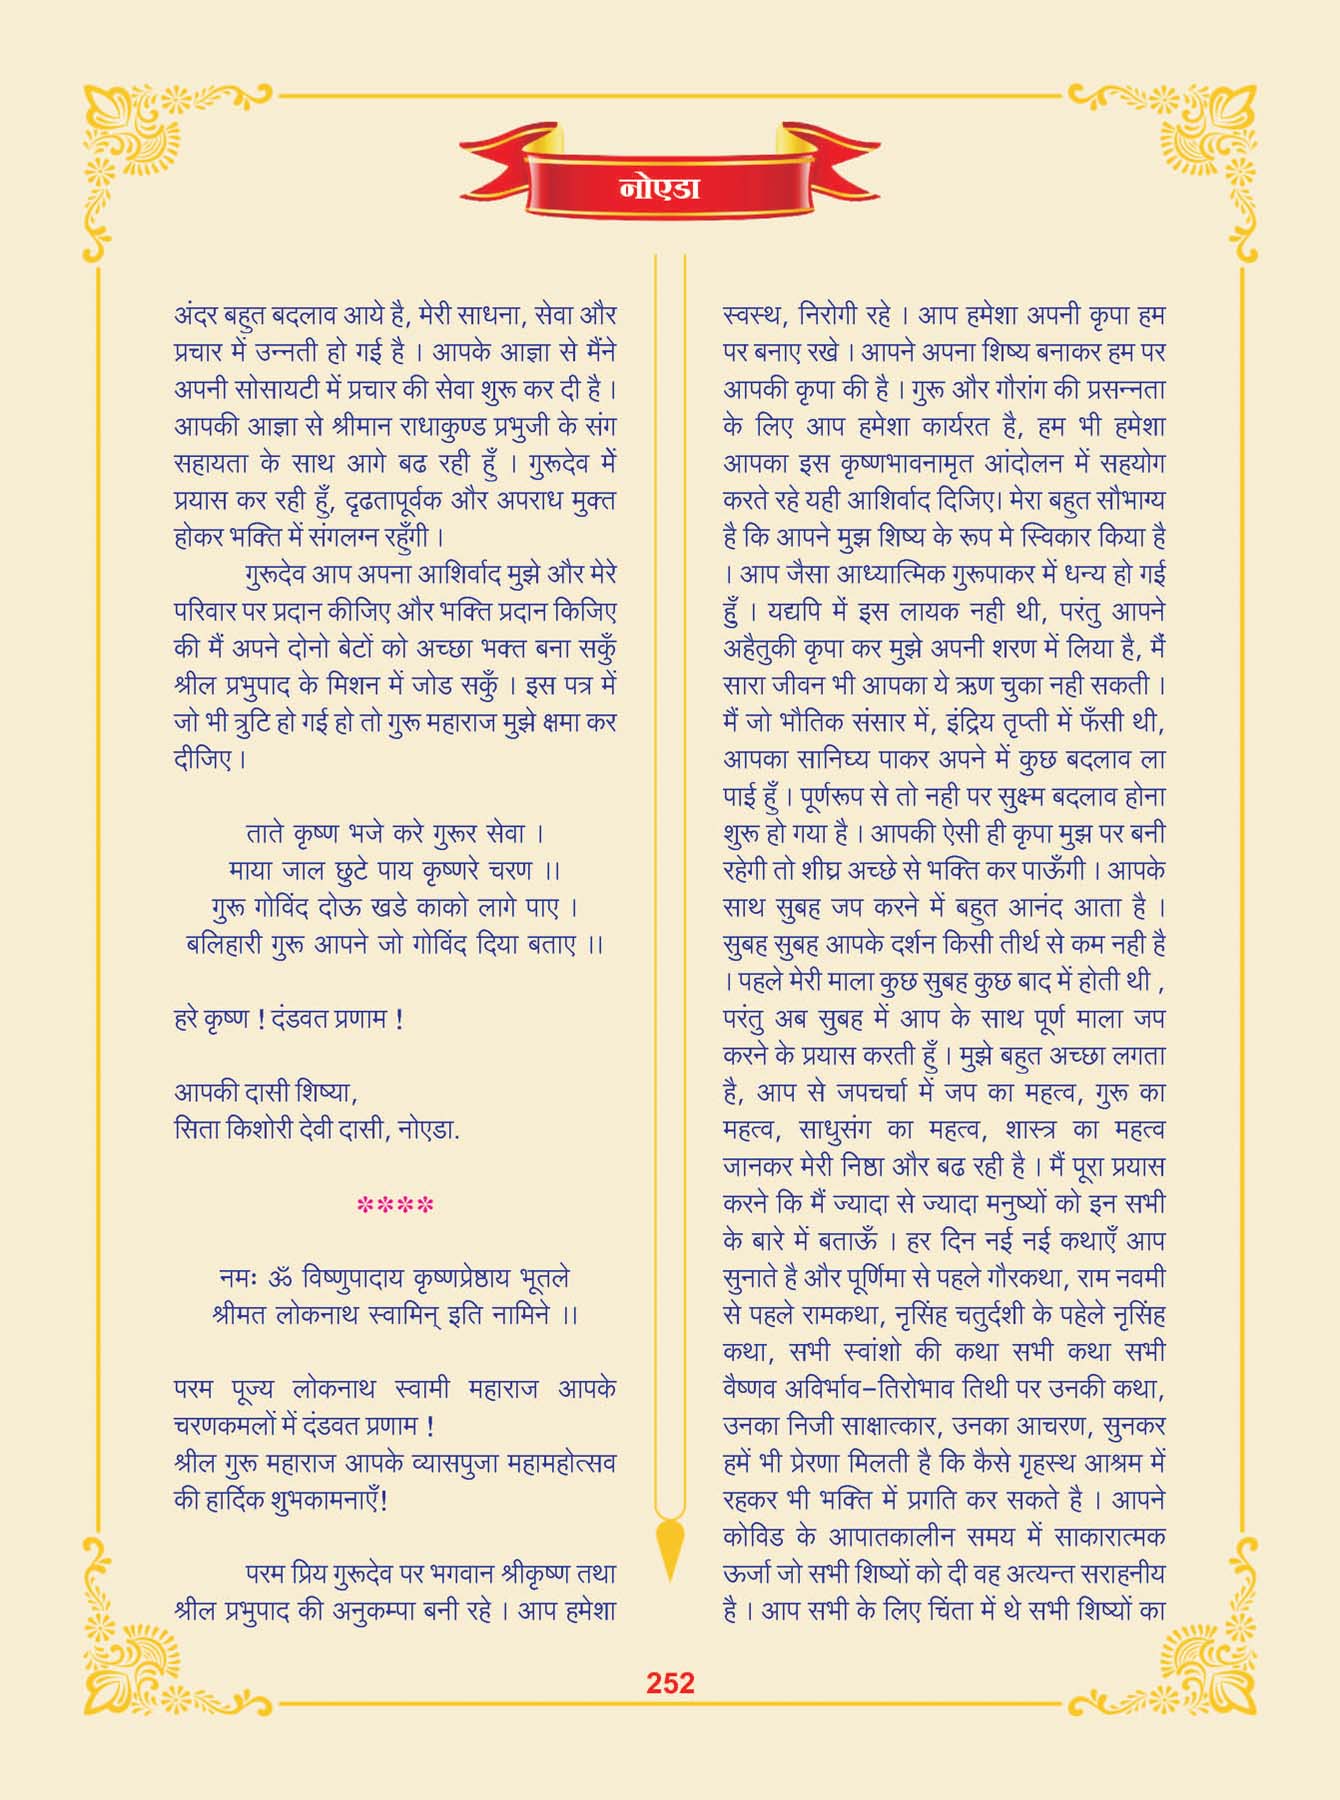 नोएडा
अंदर बहुत बदलाव आये है, मेरी साधना, सेवा और
प्रचार में उन्नती हो गई है । आपके आज्ञा से मैंने
अपनी सोसायटी में प्रचार की सेवा शुरू कर दी है ।
आपकी आज्ञा से श्रीमान राधाकुण्ड प्रभुजी के संग
सहायता के साथ आगे बढ रही हुँ । गुरूदेव में
प्रयास कर रही हुँ, दृढतापूर्वक और अपराध मुक्त
होकर भक्ति में संगलग्न रहुँगी ।
गुरूदेव आप अपना आशिर्वाद मुझे और मेरे
परिवार पर प्रदान कीजिए और भक्ति प्रदान किजिए
की मैं अपने दोनो बेटों को अच्छा भक्त बना सकुँ
श्रील प्रभुपाद के मिशन में जोड सकुँ । इस पत्र में
जो भी त्रुटि हो गई हो तो गुरू महाराज मुझे क्षमा कर
दीजिए ।
ताते कृष्ण भजे करे गुरूर सेवा ।
माया जाल छुटे पाय कृष्णरे चरण ।।
गुरू गोविंद दोऊ खडे काको लागे पाए ।
बलिहारी गुरू आपने जो गोविंद दिया बताए ।।
हरे कृष्ण ! दंडवत प्रणाम !
आपकी दासी शिष्या,
सिता किशोरी देवी दासी, नोएडा.
****
नमः ॐ विष्णुपादाय कृष्णप्रेष्ठाय भूतले
श्रीमत लोकनाथ स्वामिन् इति नामिने ।।
परम पूज्य लोकनाथ स्वामी महाराज आपके
चरणकमलों में दंडवत प्रणाम !
श्रील गुरू महाराज आपके व्यासपुजा महामहोत्सव
की हार्दिक शुभकामनाएँ!
परम प्रिय गुरूदेव पर भगवान श्रीकृष्ण तथा
श्रील प्रभुपाद की अनुकम्पा बनी रहे । आप हमेशा
स्वस्थ, निरोगी रहे । आप हमेशा अपनी कृपा हम
पर बनाए रखे । आपने अपना शिष्य बनाकर हम पर
आपकी कृपा की है । गुरू और गौरांग की प्रसन्नता
के लिए आप हमेशा कार्यरत है, हम भी हमेशा
आपका इस कृष्णभावनामृत आंदोलन में सहयोग
करते रहे यही आशिर्वाद दिजिए। मेरा बहुत सौभाग्य
है कि आपने मुझ शिष्य के रूप मे स्विकार किया है
। आप जैसा आध्यात्मिक गुरूपाकर में धन्य हो गई
हुँ । यद्यपि में इस लायक नही थी, परंतु आपने
अहैतुकी कृपा कर मुझे अपनी शरण में लिया है, मैं
सारा जीवन भी आपका ये ऋण चुका नही सकती ।
मैं जो भौतिक संसार में, इंद्रिय तृप्ती में फँसी थी,
आपका सानिघ्य पाकर अपने में कुछ बदलाव ला
पाई हुँ । पूर्णरूप से तो नही पर सुक्ष्म बदलाव होना
शुरू हो गया है । आपकी ऐसी ही कृपा मुझ पर बनी
रहेगी तो शीघ्र अच्छे से भक्ति कर पाऊँगी । आपके
साथ सुबह जप करने में बहुत आनंद आता है ।
सुबह सुबह आपके दर्शन किसी तीर्थ से कम नही है
। पहले मेरी माला कुछ सुबह कुछ बाद में होती थी ,
परंतु अब सुबह में आप के साथ पूर्ण माला जप
करने के प्रयास करती हुँ । मुझे बहुत अच्छा लगता
है, आप से जपचर्चा में जप का महत्व, गुरू का
महत्व, साधुसंग का महत्व, शास्त्र का महत्व
जानकर मेरी निष्ठा और बढ रही है । मैं पूरा प्रयास
करने कि मैं ज्यादा से ज्यादा मनुष्यों को इन सभी
के बारे में बताऊँ । हर दिन नई नई कथाएँ आप
सुनाते है और पूर्णिमा से पहले गौरकथा, राम नवमी
से पहले रामकथा, नृसिंह चतुर्दशी के पहेले नृसिंह
कथा, सभी स्वांशो की कथा सभी कथा सभी
वैष्णव अविर्भाव–तिरोभाव तिथी पर उनकी कथा,
उनका निजी साक्षात्कार, उनका आचरण, सुनकर
हमें भी प्रेरणा मिलती है कि कैसे गृहस्थ आश्रम में
रहकर भी भक्ति में प्रगति कर सकते है । आपने
कोविड के आपातकालीन समय में साकारात्मक
ऊर्जा जो सभी शिष्यों को दी वह अत्यन्त सराहनीय
है । आप सभी के लिए चिंता में थे सभी शिष्यों का
252